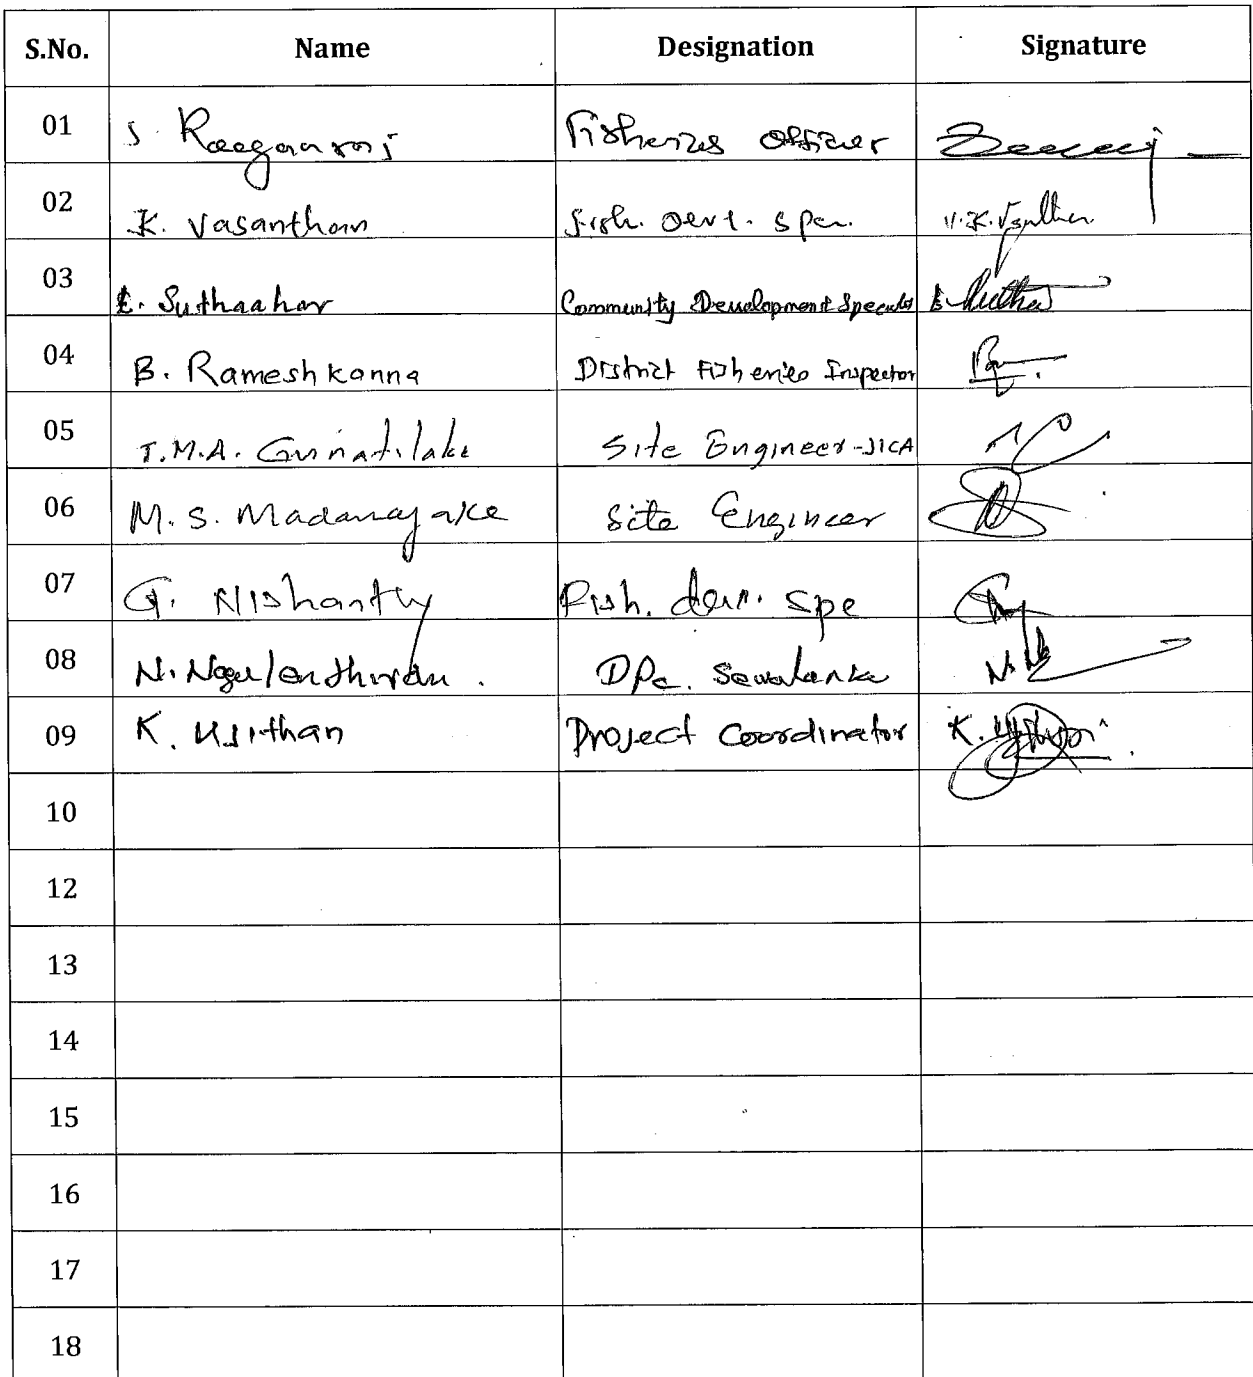 S.No. Name Designation Signature
01 S. Raagaaroj Fisheries Officer
02 K. Vasanthan Fish. Devt. Spe. V.K. Vasanthan
03 E. Suthaahar Community Development Specialist
04 B. Rameshkanna District Fisheries Inspector
05 T.M.A. Gunatilake Site Engineer-JICA
06 M.S. Madanayake Site Engineer
07 G. Nishanthy Fish. dev. Spe
08 N. Nagulenthiran. DPC. Sewalanka
09 K. Ujithan Project Coordinator
10
12
13
14
15
16
17
18